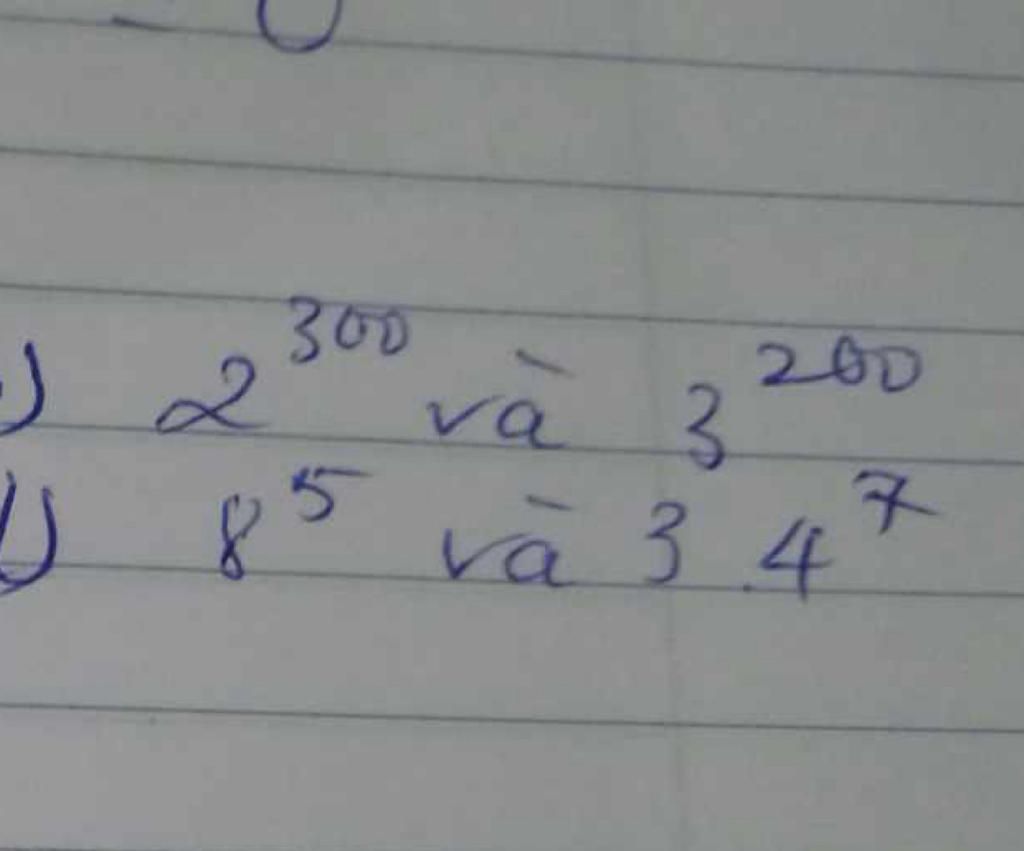 ) 2^300 và 3^200
) 8^5 và 3.4^7